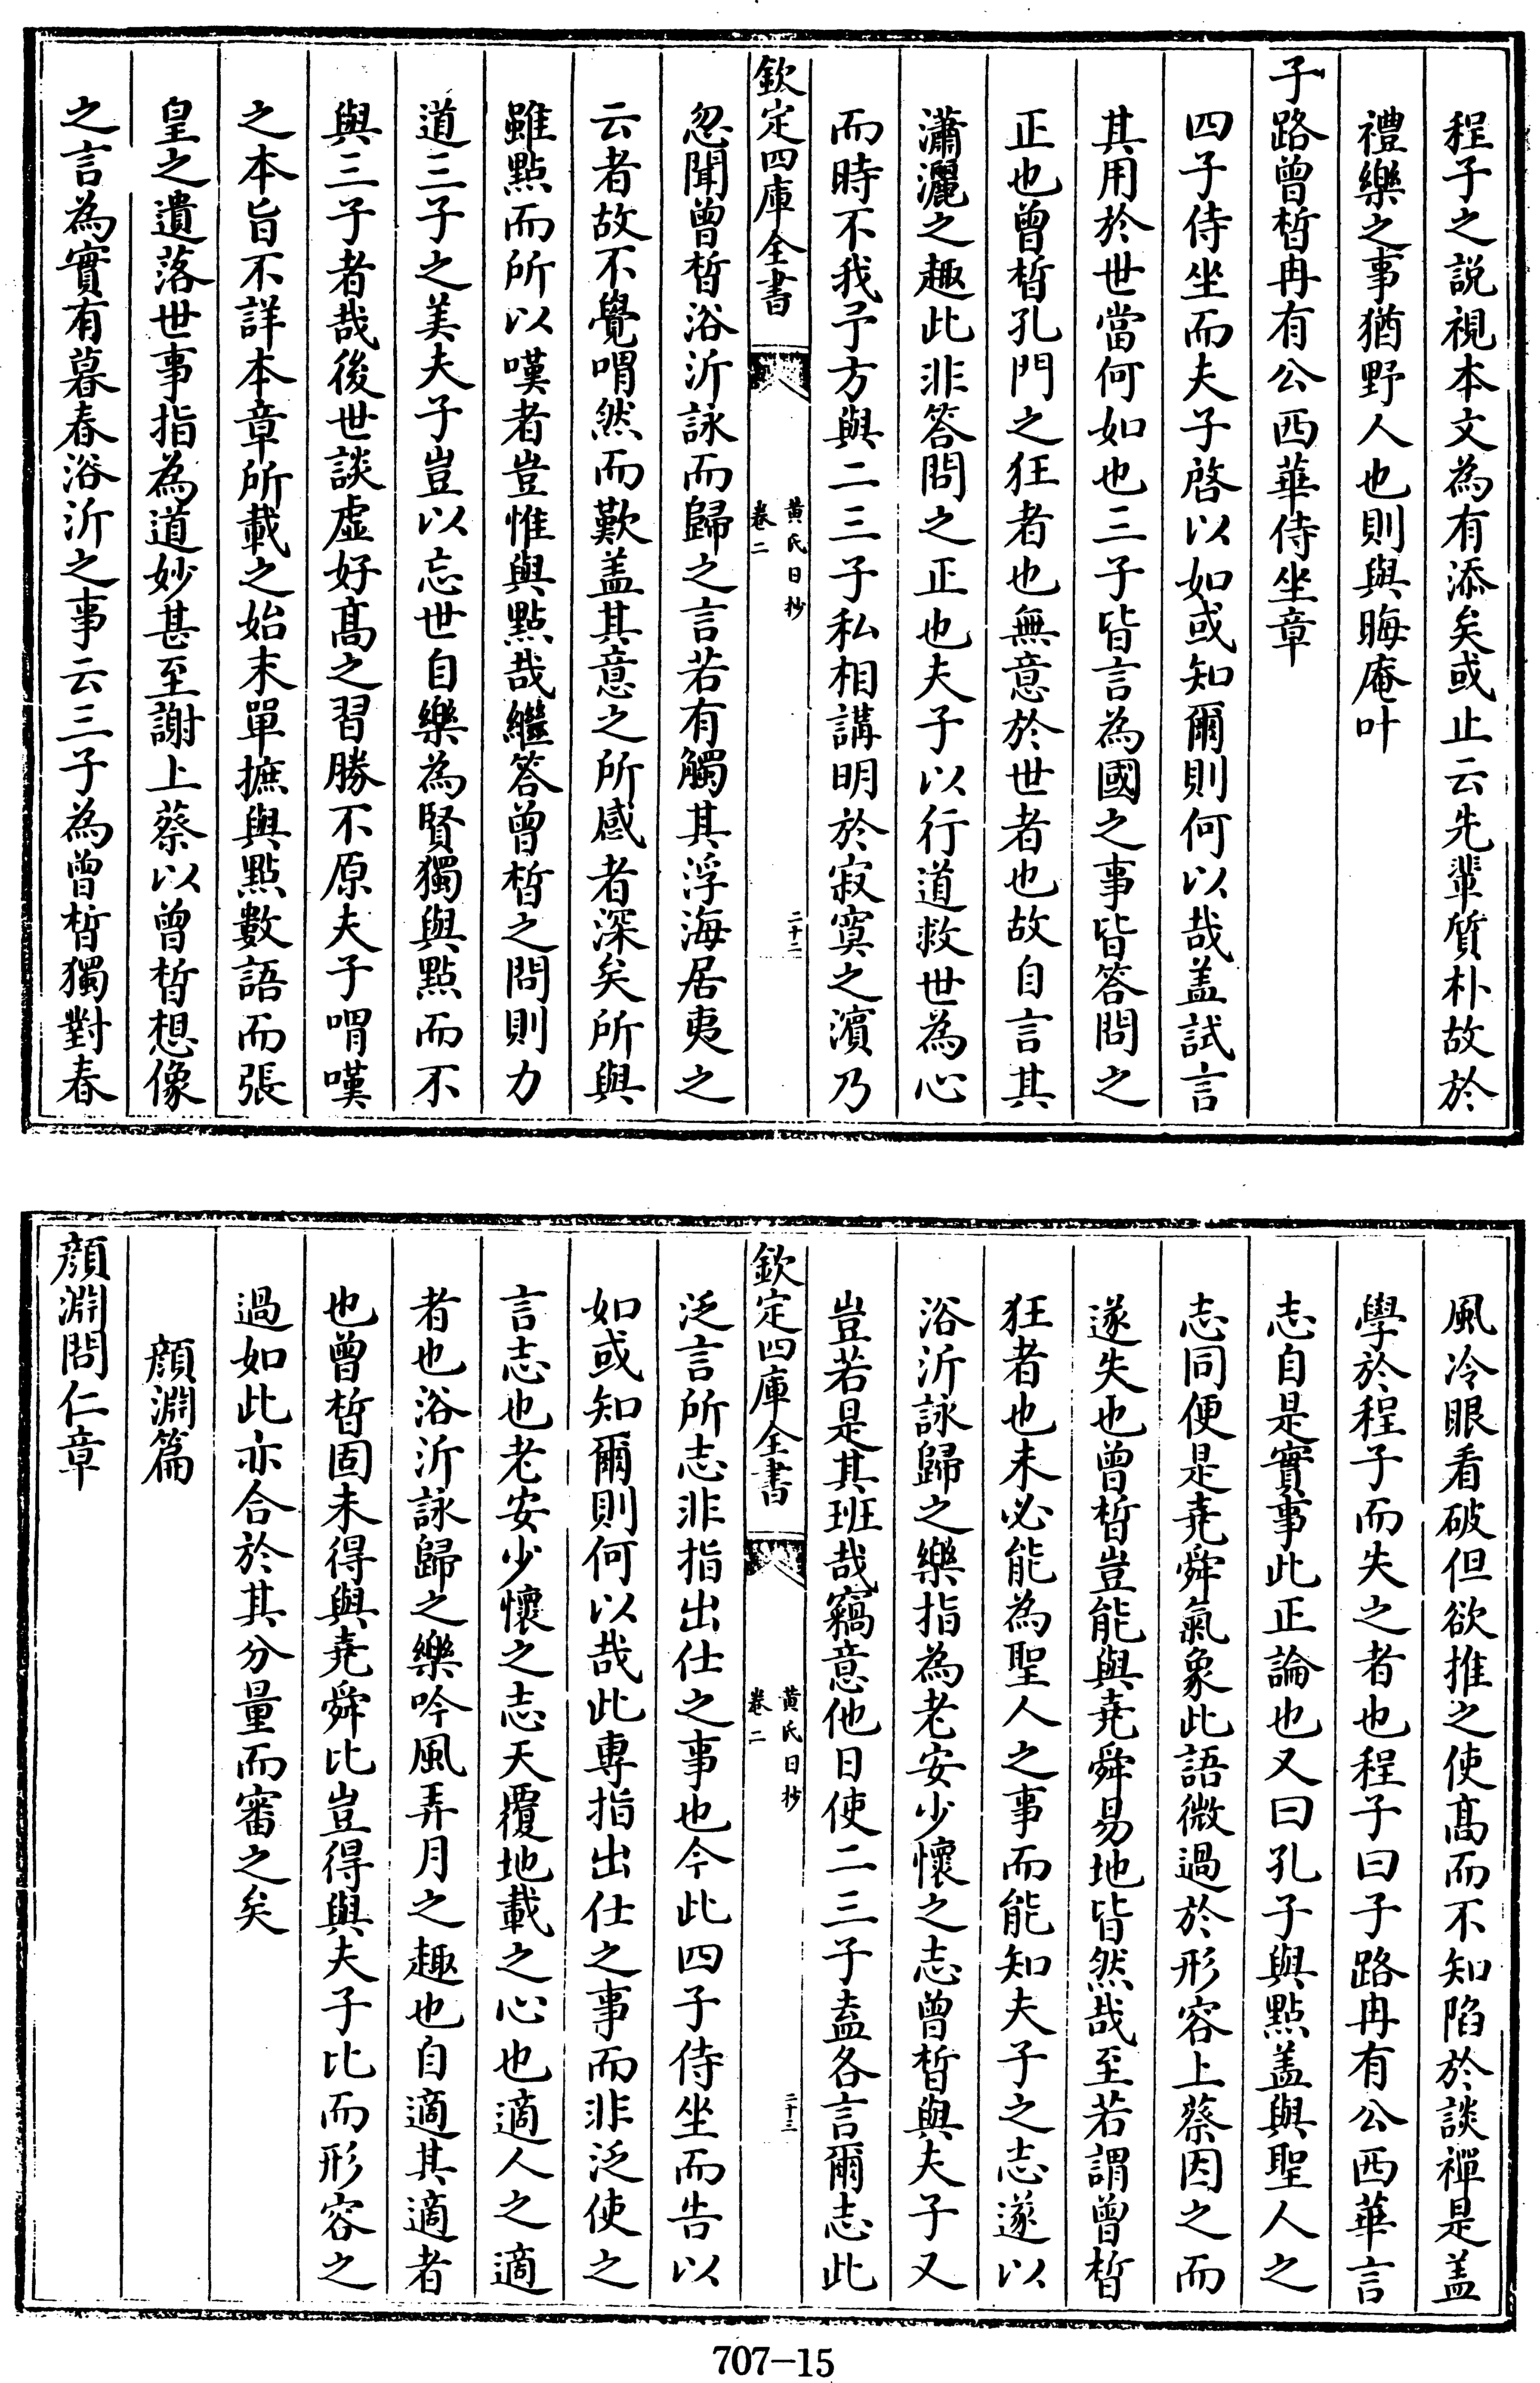 程子之說視本文為有添矣或止云先輩質朴故於
禮樂之事猶野人也則與晦庵叶
子路曾晳冉有公西華侍坐章
四子侍坐而夫子啓以如或知爾則何以哉盖試言
其用於世當何如也三子皆言為國之事皆答問之
正也曾晳孔門之狂者也無意於世者也故自言其
瀟灑之趣此非答問之正也夫子以行道救世為心
而時不我予方與二三子私相講明於寂寞之濱乃
欽定四庫全書
黄氏日抄
卷二
二十二
忽聞曾晳浴沂詠而歸之言若有觸其浮海居夷之
云者故不覺喟然而歎盖其意之所感者深矣所與
雖點而所以嘆者豈惟與點哉繼答曾晳之問則力
道三子之美夫子豈以忘世自樂為賢獨與點而不
與三子者哉後世談虛好髙之習勝不原夫子喟嘆
之本旨不詳本章所載之始末單摭與點數語而張
皇之遺落世事指為道妙甚至謝上蔡以曾晳想像
之言為實有暮春浴沂之事云三子為曾晳獨對春
風冷眼看破但欲推之使髙而不知陷於談禪是盖
學於程子而失之者也程子曰子路冉有公西華言
志自是實事此正論也又曰孔子與點盖與聖人之
志同便是堯舜氣象此語微過於形容上蔡因之而
遂失也曾晳豈能與堯舜易地皆然哉至若謂曾晳
狂者也未必能為聖人之事而能知夫子之志遂以
浴沂詠歸之樂指為老安少懷之志曾晳與夫子又
豈若是其班哉竊意他日使二三子盍各言爾志此
欽定四庫全書
黄氏日抄
卷二
二十三
泛言所志非指出仕之事也今此四子侍坐而告以
如或知爾則何以哉此專指出仕之事而非泛使之
言志也老安少懷之志天覆地載之心也適人之適
者也浴沂詠歸之樂吟風弄月之趣也自適其適者
也曾晳固未得與堯舜比豈得與夫子比而形容之
過如此亦合於其分量而審之矣
顔淵篇
顔淵問仁章
707-15